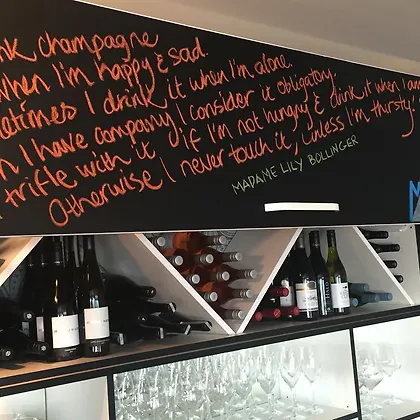 nk champagne
when I'm happy & sad.
etimes I drink it when I'm alone.
I have company, I consider it obligatory.
trifle with it if I'm not hungry & drink it when I am
Otherwise I never touch it, unless I'm thirsty.
MADAME LILY BOLLINGER
M